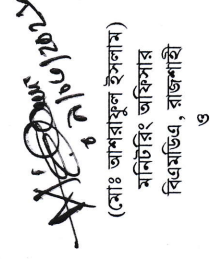 (মোঃ আশরাফুল ইসলাম)
মনিটরিং অফিসার
বিএমডিএ, রাজশাহী
ও